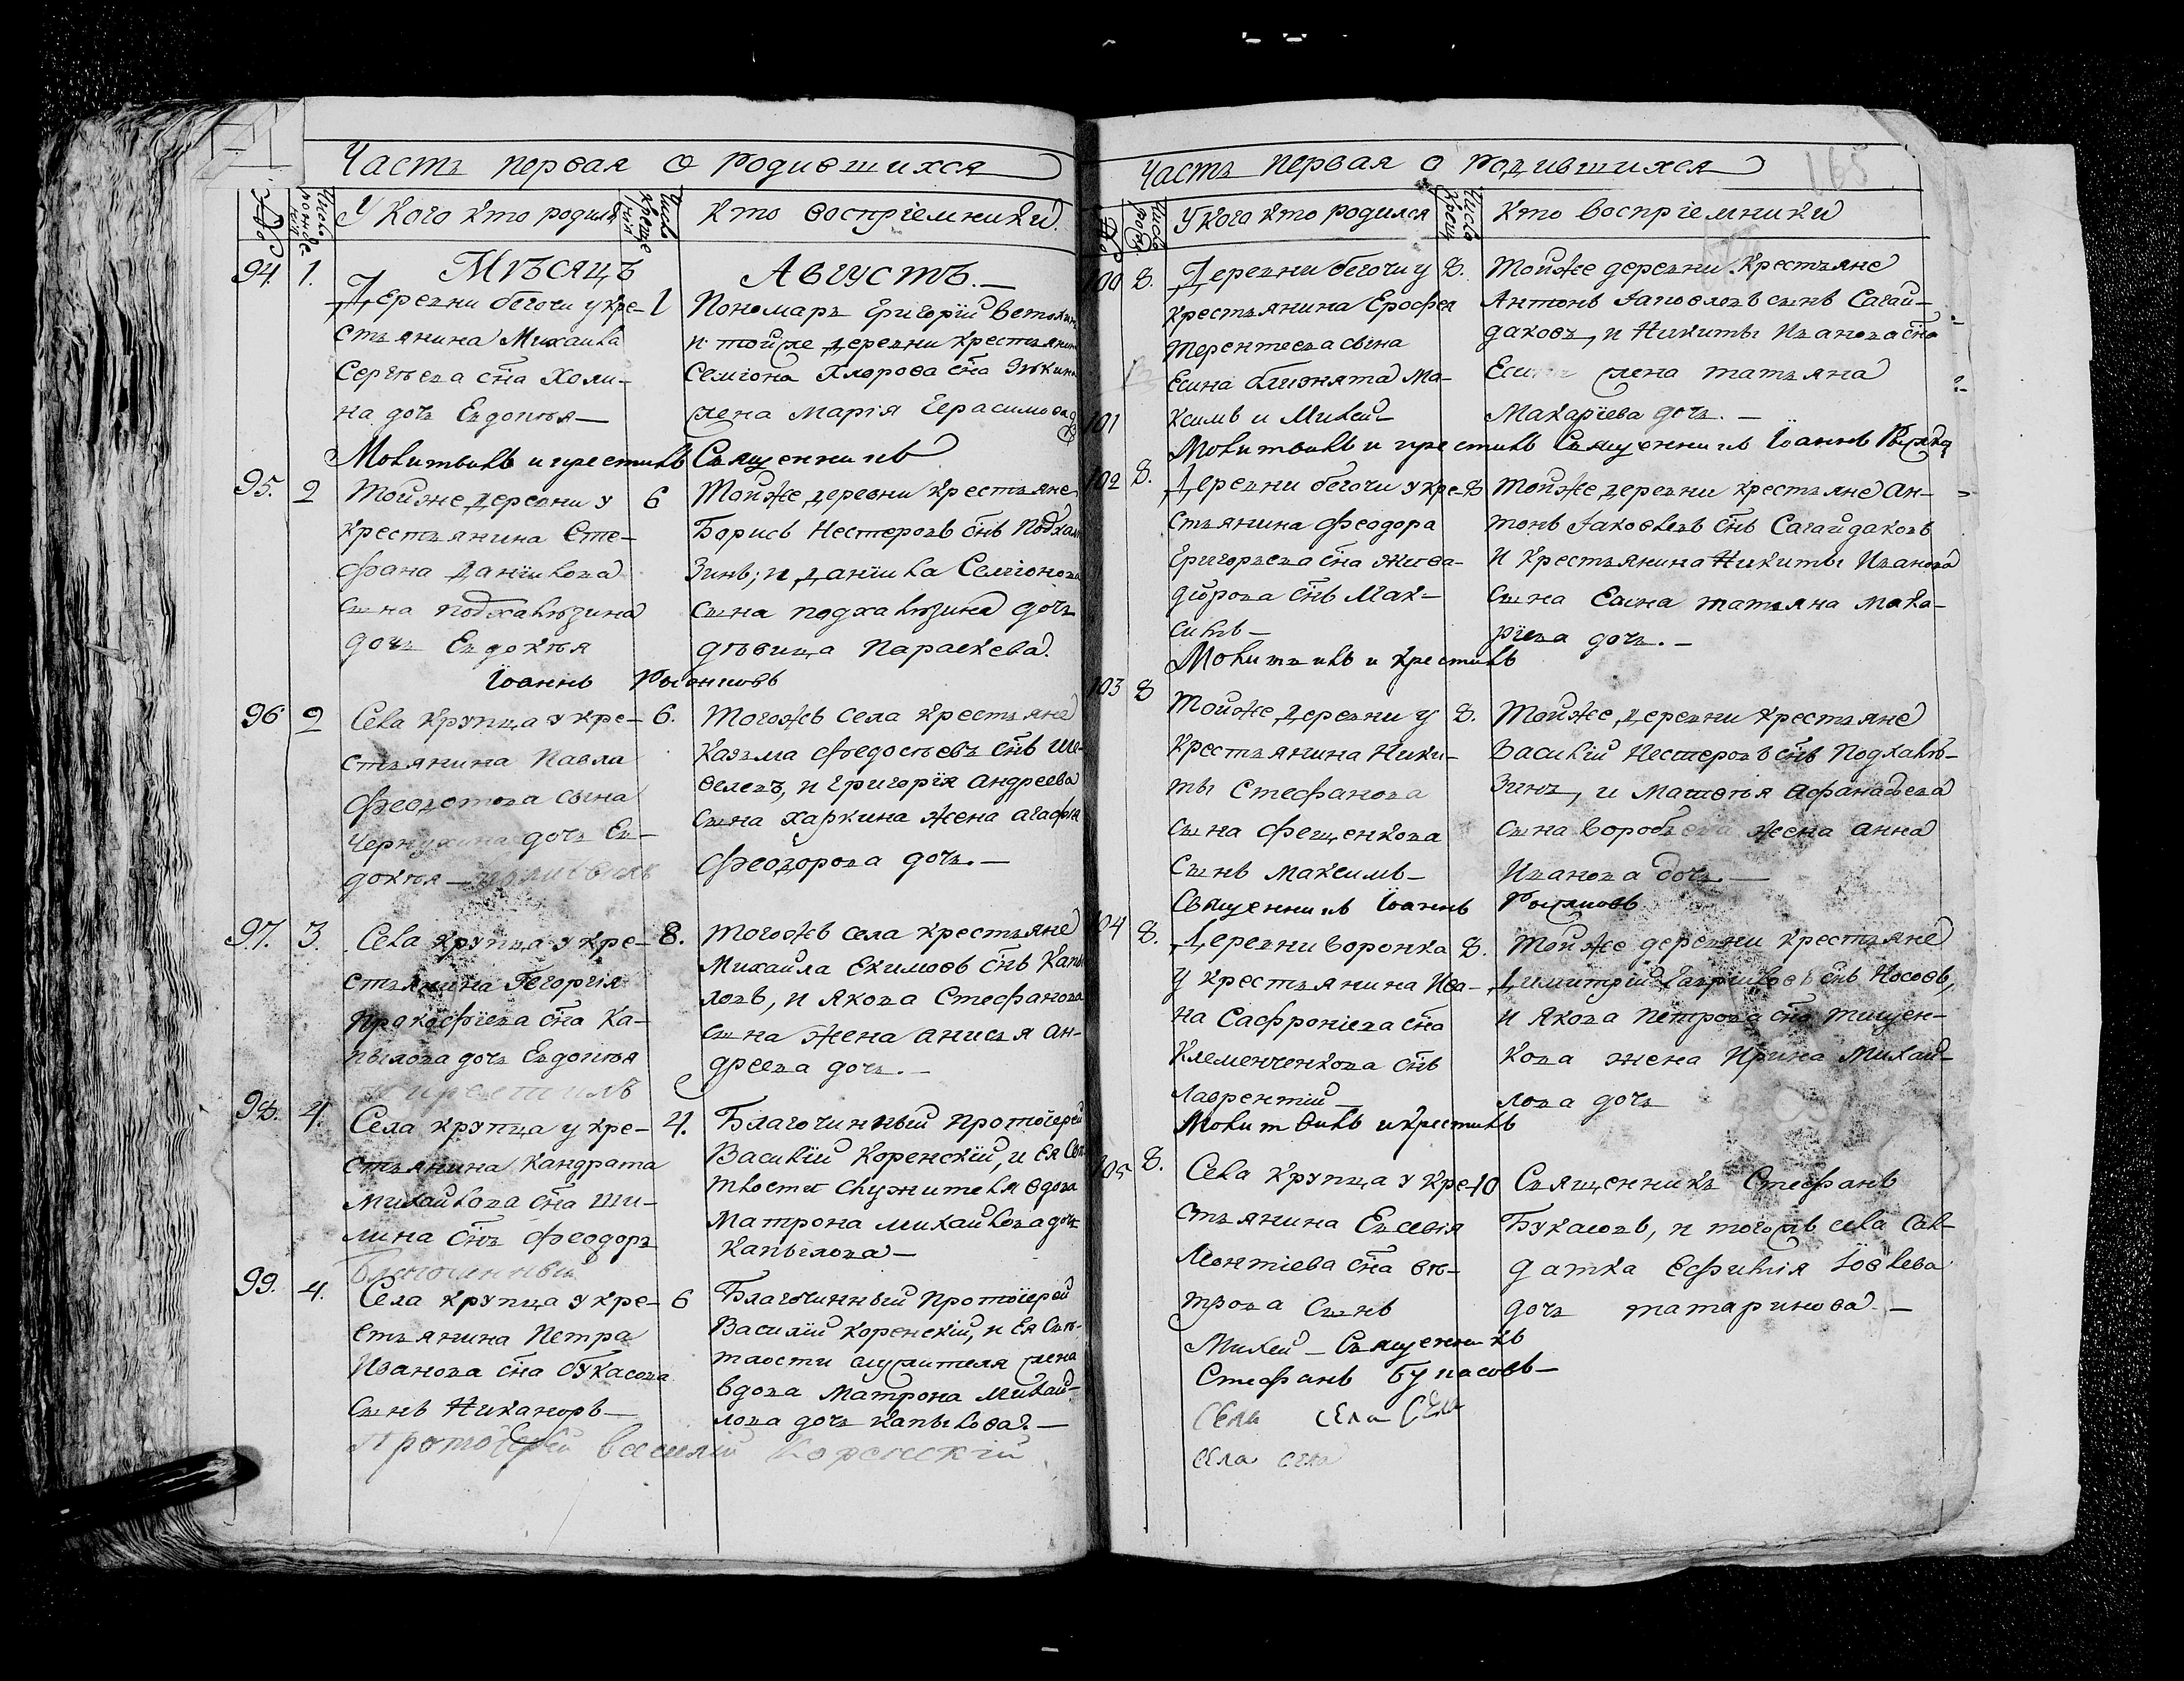 Часть первая о родившихся
№
Число рожде-нія
У кого кто родился
Число креще-нія
Кто воспріемники.
Мѣсяцъ Августъ.—
94. 1.
Деревни бегочи у кре-
стьянина Михаила
Сергѣева сна Холи-
на дочь Евдокѣя—
1
Пономарь Григорій
и тойже деревни крестьянина
Семіона Хлорова сна
жена Марія Герасимова
Молитвилъ и крестилъ Священникъ
95. 2
Тойже деревни у
крестьянина Сте-
фана Даніилова
сына Подхалюзина
дочь Евдокѣя
6
Тойже деревни крестьяне
Борисъ Нестеровъ снъ Подхалю
зинъ; и Даніила Семіонова
сына подхалюзина дочь
дѣвица Параскева.
Іоаннъ
96 2
Села Крупца у кре-
стьянина Павла
Феодотова сына
Чернухина дочь Ев-
докѣя—
6.
Тогожъ села крестьяне
Казьма Федосѣевъ снъ Ше-
велевъ, и Григорія Андреева
сына Харкина жена Агафія
Феодорова дочь.—
97. 3.
Села Крупца у кре-
стьянина Гегоргія
Прокофіева сна Ка-
пылова дочь Евдокѣя
и крестилъ
8.
Тогожъ села крестьяне
Михаила Екимовъ снъ Капы
ловъ, и Якова Стефанова
сына жена Анисья Ан-
дреева дочь.—
98. 4.
Села Крупца у кре-
стьянина Кандрата
Михайлова сна Ши-
лина снъ Феодоръ
Благочинный
4.
Благочинный протоіерей
Василій Коренскій, и Ея Свѣ
тлости служителя вдова
Матрона Михайлова дочь
Капылова—
99. 4.
Села Крупца у кре-
стьянина Петра
Иванова сна Букасова
сынъ Никаноръ—
6
Благочинный протоіерей
Василій Коренскій, и Ея Свѣ-
тлости служителя жена
вдова Матрона Михай-
лова дочь Капылова.—
Протоіерей Василій Коренскій
Часть первая о родившихся
165
№
Число рож.
У кого кто родился
Число крещ.
Кто воспріемники
100 8.
Деревни бегочи у
крестьянина Ерофея
Терентьева сына
Есина близнята Ма-
101
ксимъ и Михей—
8.
Тойже деревни крестьяне
Антонъ Іаковлевъ сынъ Сагай-
даковъ, и Никиты Иванова сна
Есина жена Татьяна
Макаріева дочь.—
Молитвилъ и крестилъ Священникъ Іоаннъ
102 8.
Деревни бегочи у кре-
стьянина Феодора
Григорьева сна Жива-
дёрова снъ Мак-
симъ—
8
Тойже деревни крестьяне Ан-
тонъ Іаковлевъ снъ Сагайдаковъ
и крестьянина Никиты Иванова
сына Есина Татьяна Мака-
ріева дочь.—
Молитвилъ и крестилъ
103 8
Тойже деревни у
крестьянина Ники-
ты Стефанова
сына Фещенкова
сынъ Максимъ—
8.
Тойже деревни крестьяне
Василій Нестеровъ снъ Подхалю-
зинъ, и Матвѣя Афанасьева
сына Воробьева жена Анна
Иванова дочь.—
Священникъ Іоаннъ
104 8.
Деревни Воронка
у крестьянина Ива-
на Сафроніева сна
Клеменченкова снъ
Лаврентій—
8.
Тойже деревни крестьяне
Димитрій Гавриловъ снъ Носовъ,
и Якова Петрова сна Тищен-
кова жена Ирина Михай-
лова дочь
Молитвилъ и крестилъ
105 8.
Села Крупца у кре-
стьянина Евсевія
Леонтіева сна Вѣ-
трова сынъ
Михей— Священникъ
Стефанъ Букасовъ—
10
Священникъ Стефанъ
Букасовъ, и тогожъ села сал-
датка Ефимія Іовлева
дочь Татаринова.—
села села села
села села